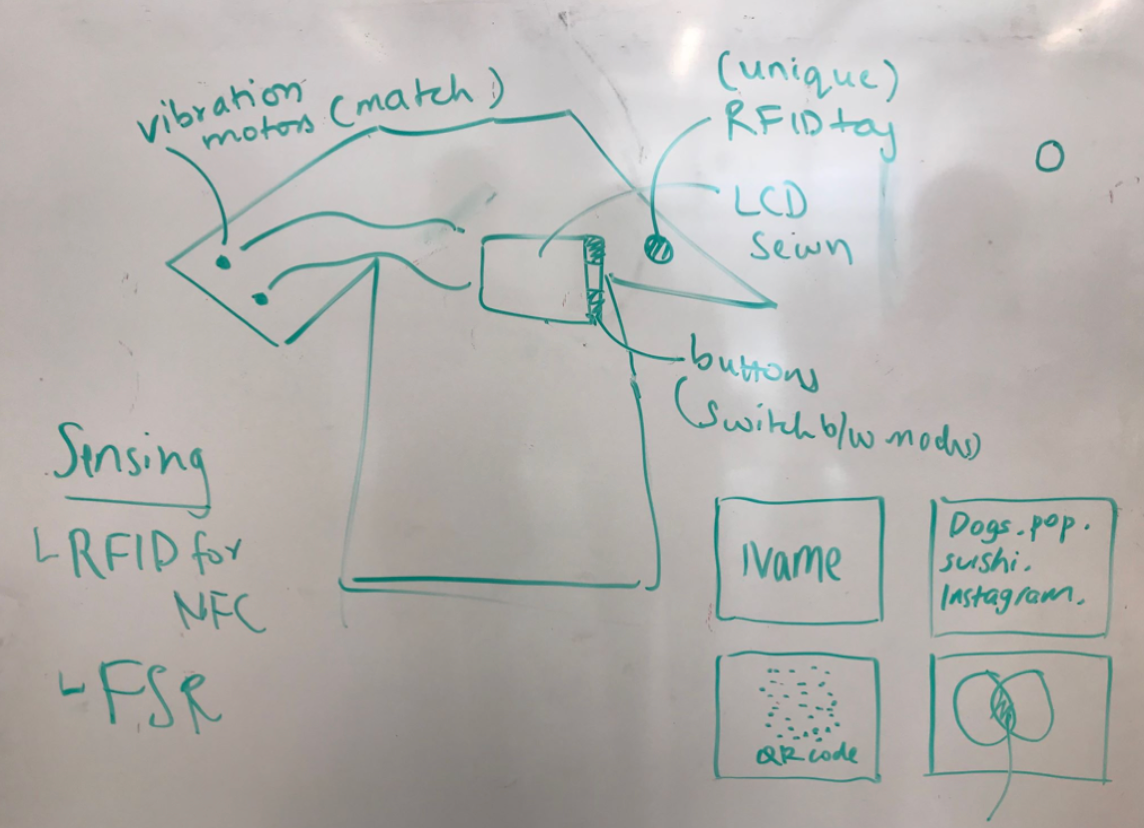 vibration
motors (match)
(unique)
RFID tag
LCD
sewn
buttons
(switch b/w modes)
Sensing
RFID for
NFC
FSR
Name
Dogs. pop.
sushi.
Instagram.
QR code